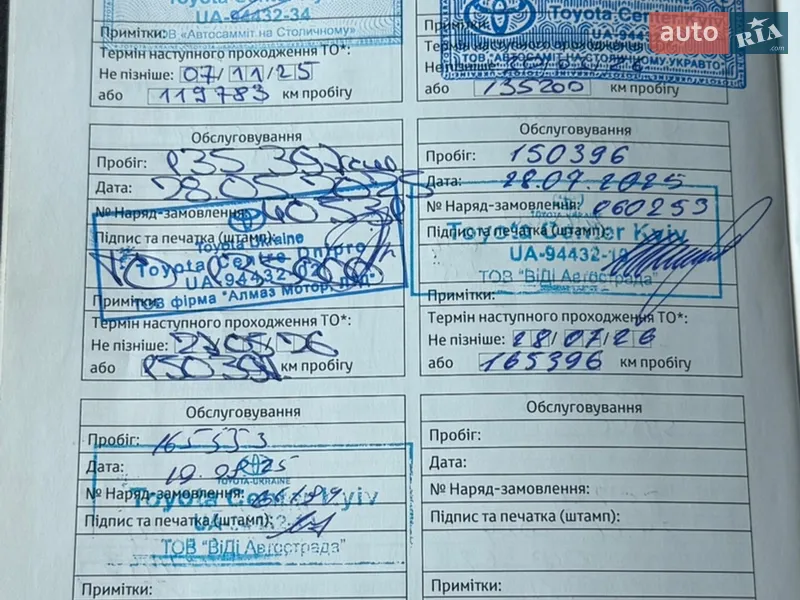 UA-94432-34
Примітки:
ТОВ «Автосамміт на Столичному»
Термін наступного проходження ТО*:
Не пізніше: 07/11/25
або 119783 км пробігу
Toyota Center Kyiv
UA-9443
ТОВ "АВТОСАМІТ НА СТОЛИЧНОМУ. УКРАВТО
Не пізніше:
або 135200 км пробігу
auto RIA.com
Обслуговування
Пробіг: 135397
Дата: 28.05.2025
№ Наряд-замовлення:
Підпис та печатка (штамп):
Toyota Ukraine
Toyota Centre Dnipro
UA-94432-02
ТОВ фірма "Алмаз Мотор, Лтд"
Примітки:
Термін наступного проходження ТО*:
Не пізніше: 27/05/26
або 150397 км пробігу
Обслуговування
Пробіг: 150396
Дата: 28.07.2025
№ Наряд-замовлення: 060253
Підпис та печатка (штамп):
Toyota Center Kyiv
UA-94432-12
ТОВ "ВіДі Автострада"
Примітки:
Термін наступного проходження ТО*:
Не пізніше: 28/07/26
або 165396 км пробігу
Обслуговування
Пробіг: 165553
Дата:
TOYOTA-UKRAINE
№ Наряд-замовлення:
Toyota Center Kyiv
Підпис та печатка (штамп):
ТОВ "ВіДі Автострада"
Примітки:
Обслуговування
Пробіг:
Дата:
№ Наряд-замовлення:
Підпис та печатка (штамп):
Примітки: